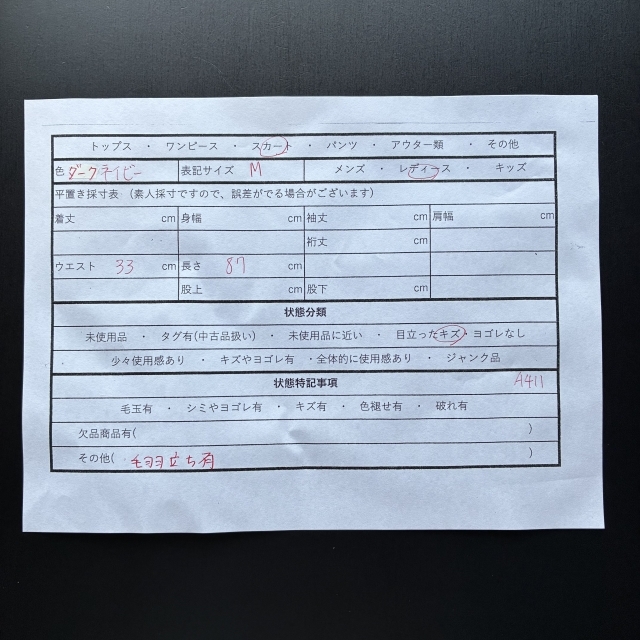 トップス ・ ワンピース ・ スカート ・ パンツ ・ アウター類 ・ その他
色 ダークネイビー 表記サイズ M メンズ ・ レディース ・ キッズ
平置き採寸表 (素人採寸ですので、誤差がでる場合がございます)
着丈 cm 身幅 cm 袖丈 cm 肩幅 cm
裄丈 cm
ウエスト 33 cm 長さ 87 cm
股上 cm 股下 cm
状態分類
未使用品 ・ タグ有(中古品扱い) ・ 未使用品に近い ・ 目立ったキズ・ヨゴレなし
少々使用感あり ・ キズやヨゴレ有 ・全体的に使用感あり ・ ジャンク品
状態特記事項 A411
毛玉有 ・ シミやヨゴレ有 ・ キズ有 ・ 色褪せ有 ・ 破れ有
欠品商品有( )
その他( 毛羽立ち有 )